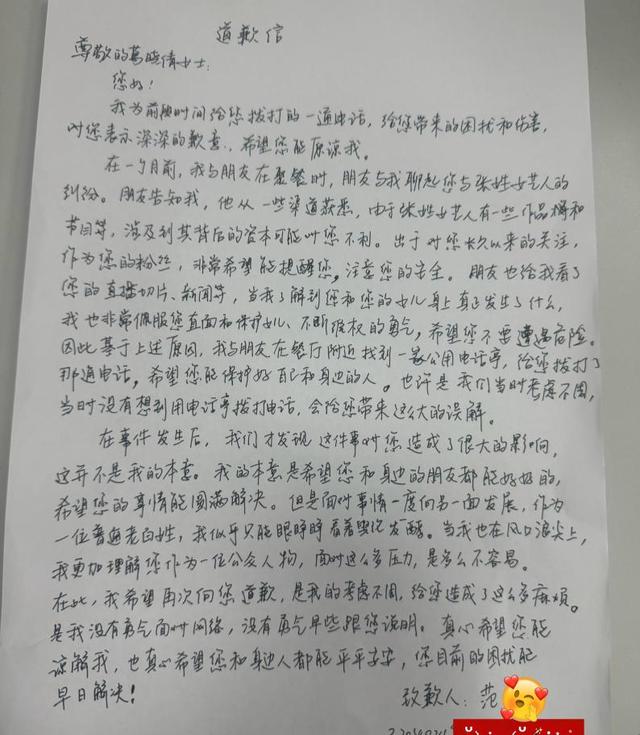 道歉信
尊敬的葛晓倩女士:
您好!
我为前段时间给您拨打的一通电话，给您带来的困扰和伤害，
对您表示深深的歉意，希望您能原谅我。
在一个月前，我与朋友在聚餐时，朋友与我聊起您与张姓女艺人的
纠纷。朋友告知我，他从一些渠道获悉，由于张姓女艺人有一些作品播和
节目等，涉及到其背后的资本可能对您不利。出于对您长久以来的关注，
作为您的粉丝，非常希望能提醒您，注意您的安全。朋友也给我看了
您的直播切片、新闻等，当我了解到您和您的女儿身上真正发生了什么，
我也非常佩服您直面和保护女儿、不断维权的勇气，希望您不要遭遇危险。
因此基于上述原因，我与朋友在餐厅附近找到一家公用电话亭，给您拨打了
那通电话，希望您能保护好自己和身边的人。也许是我们当时考虑不周，
当时没有想到用电话亭拨打电话，会给您带来这么大的误解。
在事件发生后，我们才发现这件事对您造成了很大的影响，
这并不是我的本意。我的本意是希望您和身边的朋友都能好好的，
希望您的事情能圆满解决。但是面对事情一度向另一面发展，作为
一位普通老百姓，我似乎只能眼睁睁看着舆论发酵。当我也在风口浪尖上，
我更加理解您作为一位公众人物，面对这么多压力，是多么不容易。
在此，我希望再次向您道歉，是我的考虑不周，给您造成了这么多麻烦。
是我没有勇气面对网络，没有勇气早些跟您说明。真心希望您能
谅解我，也真心希望您和身边人都能平平安安，您目前的困扰能
早日解决!
致歉人：范